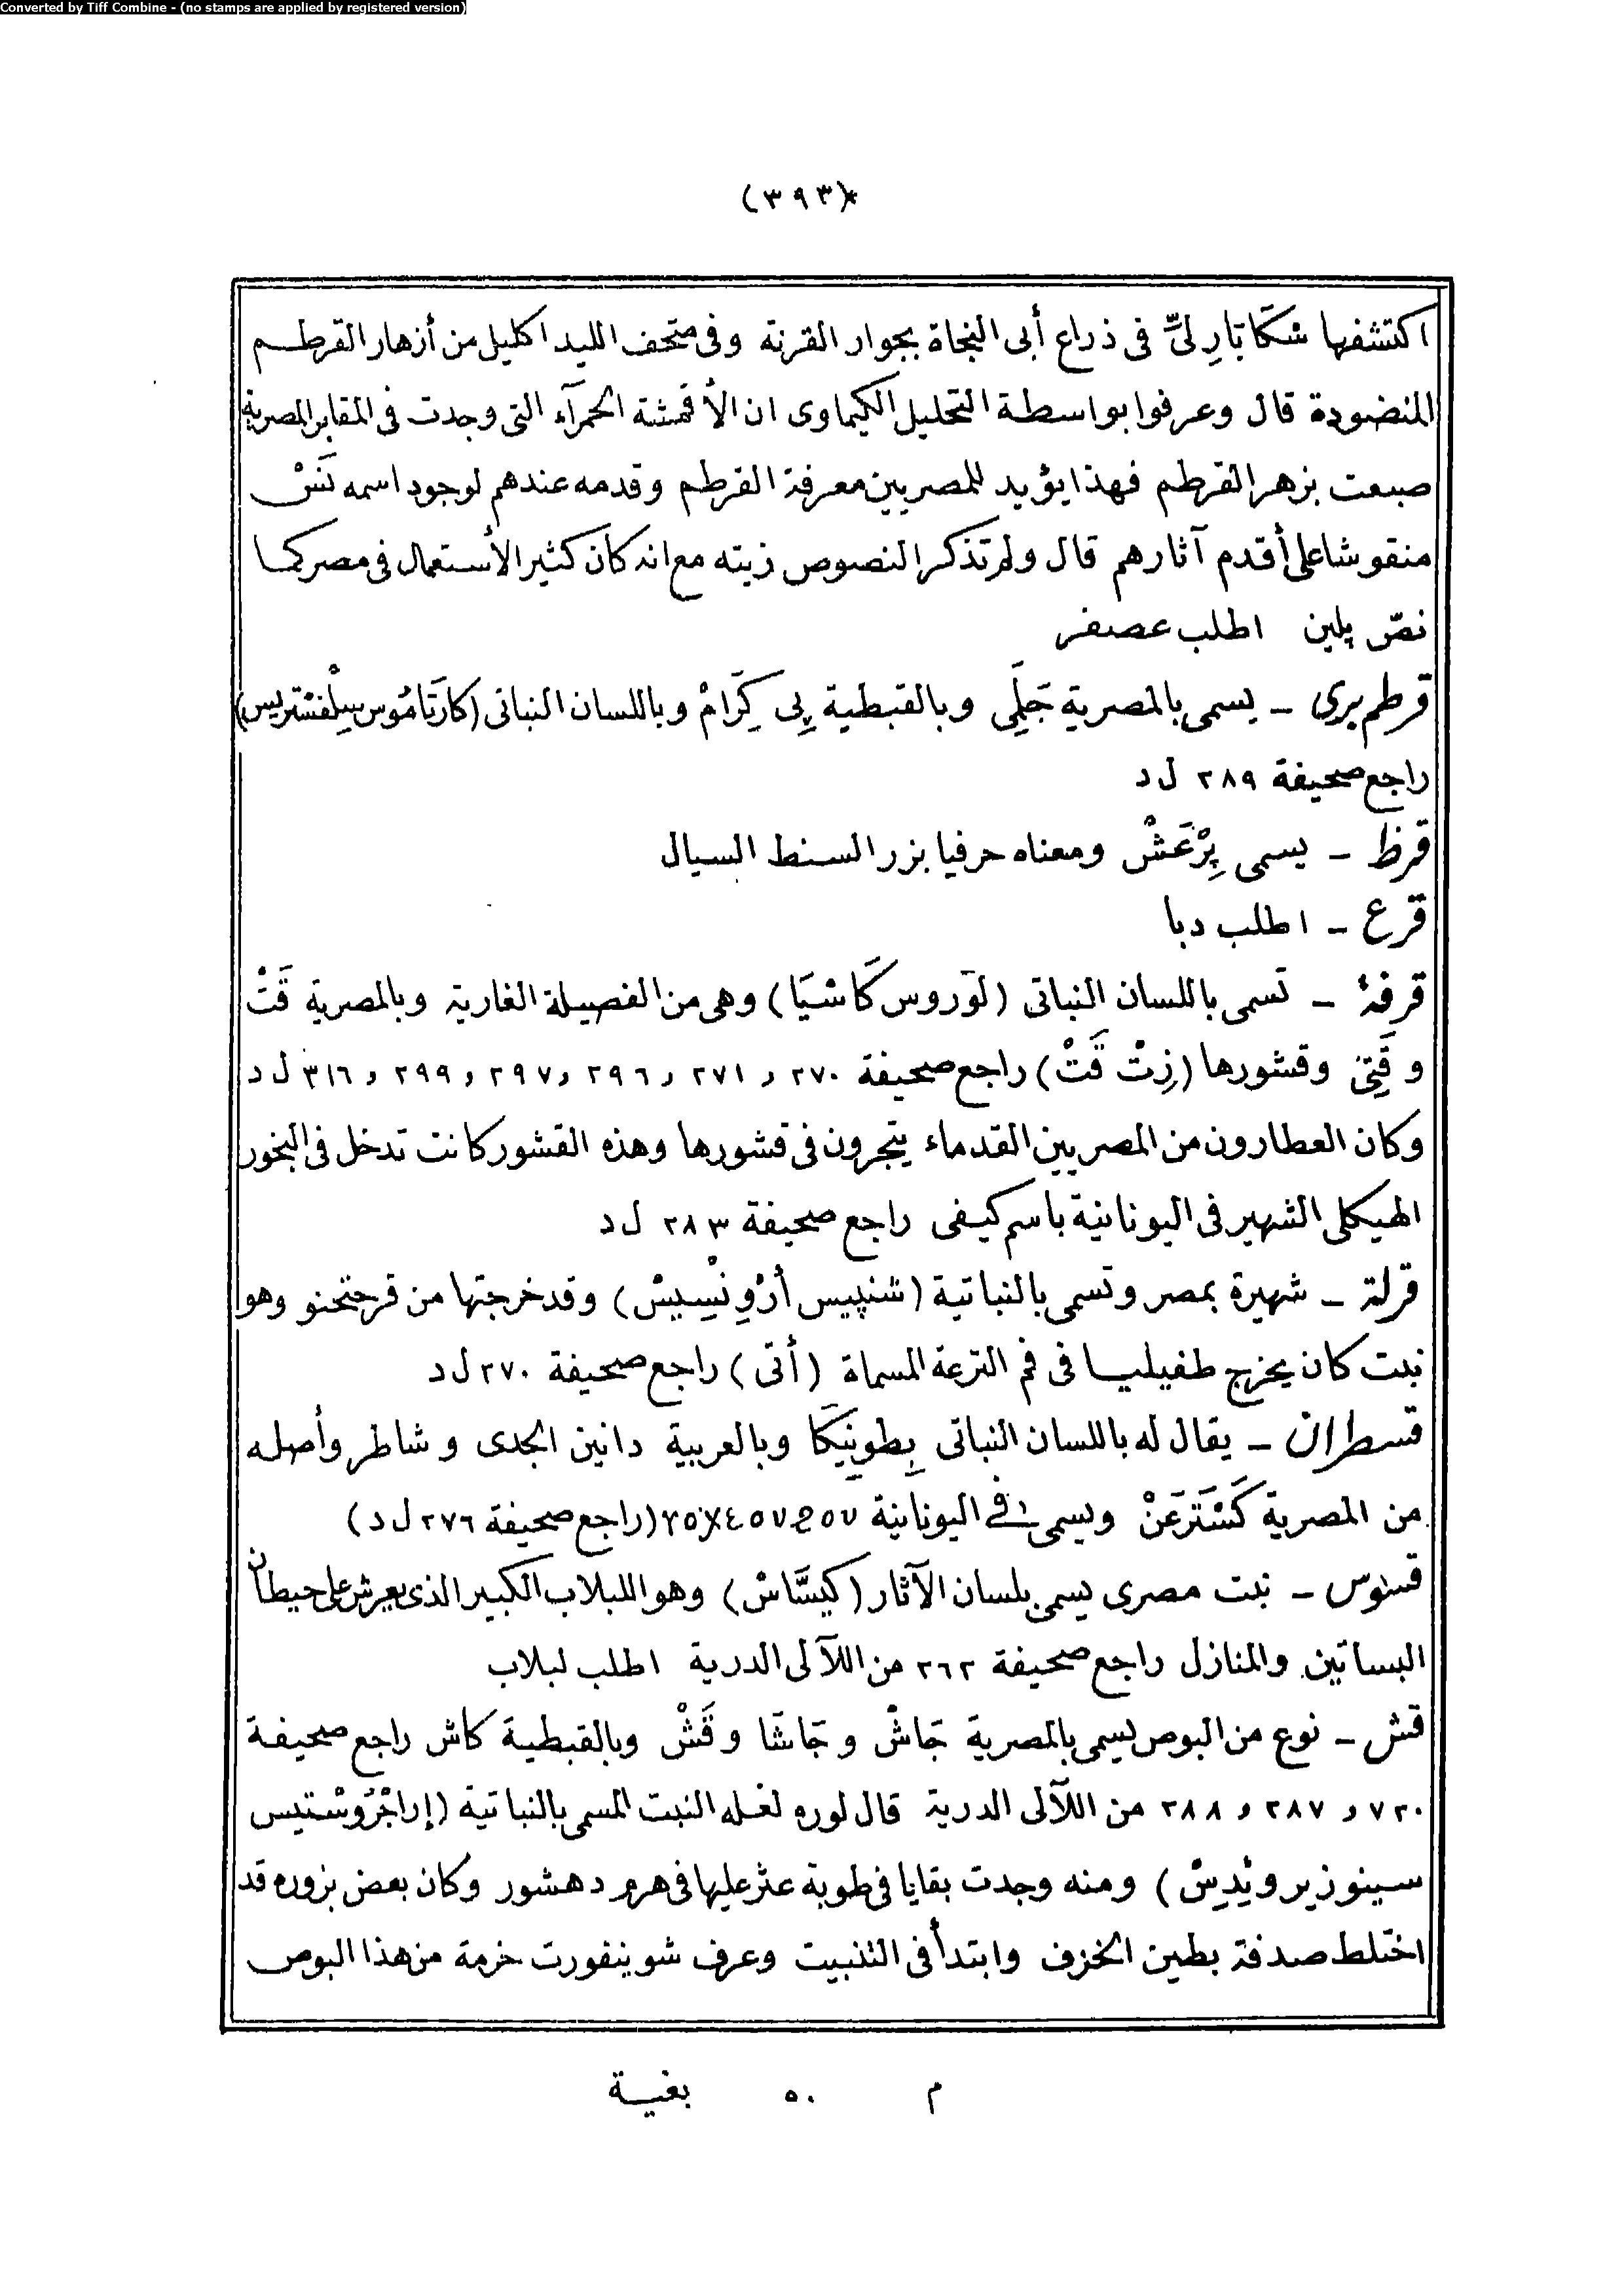 Converted by Tiff Combine - (no stamps are applied by registered version)
(٣٩٣)*
اكتشفها شكَاتَارِلىّ فى ذراع أبى النجاة بجوار القرنة وفى متحف الليد اكليل من أزهار القرطم
المنضودة قال وعرفوا بواسطة التحليل الكيماوى ان الأقمشة الحمرآء التى وجدت فى المقابر المصرية
صبعت بزهر القرطم فهذا يؤيد للمصريين معرفة القرطم وقدمه عندهم لوجود اسمه نَسْ
منقوشا على أقدم آثارهم قال ولم تذكر النصوص زيته مع انه كان كثير الأستعمال فى مصر كما
نصّ پلين اطلب عصفر
قرطم برى - يسمى بالمصرية جَلَمِى وبالقبطية پِى كِرَامْ وباللسان النباتى (كارَتامُوس سِلْفستريس)
راجع صحيفة ٢٨٩ ل د
قرظ - يسمى پِرْعَشْ ومعناه حرفيا بزر السنط السيال
قرع - اطلب دبا
قرفة - تسمى باللسان النباتى (لوَروس كَاسْيَا) وهى من الفصيلة الغارية وبالمصرية قَتْ
و قَتِى وقشورها (زِتْ قَتْ) راجع صحيفة ٢٧٠ و ٢٧١ و ٢٩٦ و ٢٩٧ و ٢٩٩ و ٣١٦ ل د
وكان العطارون من المصريين القدماء يتجرون فى قشورها وهذه القشور كانت تدخل فى البخور
الهيكلى الشهير فى اليونانية باسم كيفى راجع صحيفة ٢٨٣ ل د
قرلة - شهيرة بمصر وتسمى بالنباتية (سنپيس أرْوِنْسِيسْ) وقد خرجتها من قرحتحنو وهو
نبت كان يخرج طفيليا فى فم الترعة المسماة (أتى) راجع صحيفة ٢٧٠ ل د
قسطران - يقال له باللسان النباتى بِطونِيكَا وبالعربية دانين الجدى وشاطر وأصله
من المصرية كَسْتَرعَنْ ويسمى فى اليونانية (راجع صحيفة ٢٧٦ ل د)
قسوس - نبت مصرى يسمى بلسان الآثار (كيسَّاسْ) وهو اللبلاب الكبير الذى يعرش على حيطان
البساتين والمنازل راجع صحيفة ٢٦٢ من اللآلى الدرية اطلب لبلاب
قش - نوع من البوص يسمى بالمصرية جَاشْ و جَاشَا و قَشْ وبالقبطية كاش راجع صحيفة
٧٢٠ و ٢٨٧ و ٢٨٨ من اللآلى الدرية قال لوره لعله النبت المسمى بالنباتية (إراجْرُوسْتيس
سينوزيرويْدِسْ) ومنه وجدت بقايا فى طوبة عثر عليها فى هرم دهشور وكان بعض بزوره قد
اختلط صدفة بطين الخزف وابتدأ فى التنبيت وعرف شوينفورت حزمة من هذا البوص
م ٥٠ بغية